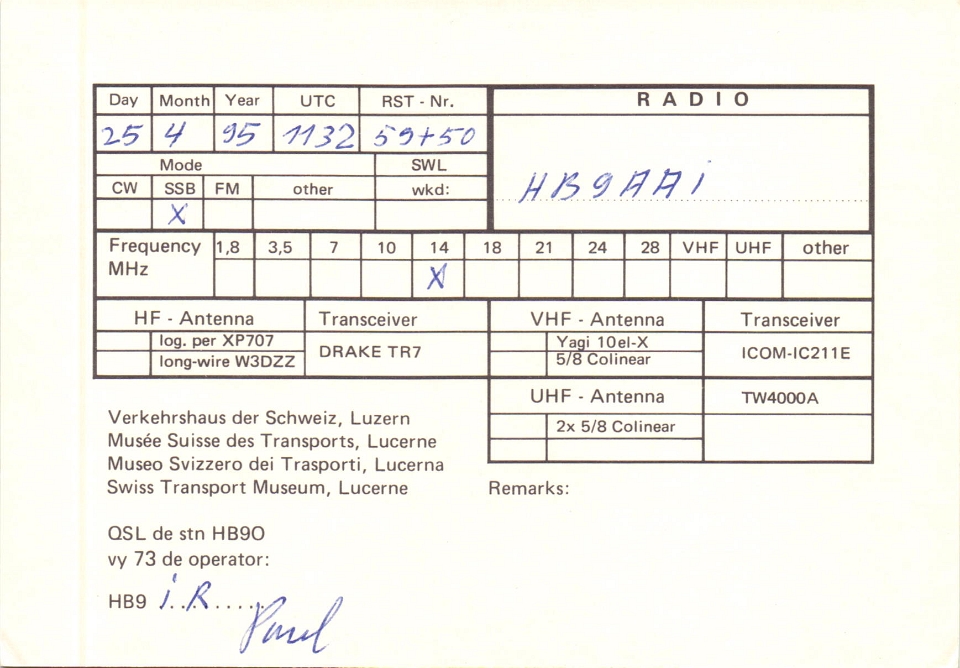 Day Month Year UTC RST - Nr. RADIO
25 4 95 1132 59+50
Mode SWL
HB9AAI
CW SSB FM other wkd:
X
Frequency MHz 1,8 3,5 7 10 14 18 21 24 28 VHF UHF other
X
HF - Antenna Transceiver VHF - Antenna Transceiver
log. per XP707 DRAKE TR7 Yagi 10el-X ICOM-IC211E
long-wire W3DZZ 5/8 Colinear
UHF - Antenna TW4000A
2x 5/8 Colinear
Verkehrshaus der Schweiz, Luzern
Musée Suisse des Transports, Lucerne
Museo Svizzero dei Trasporti, Lucerna
Swiss Transport Museum, Lucerne
Remarks:
QSL de stn HB9O
vy 73 de operator:
HB9 i.R.....